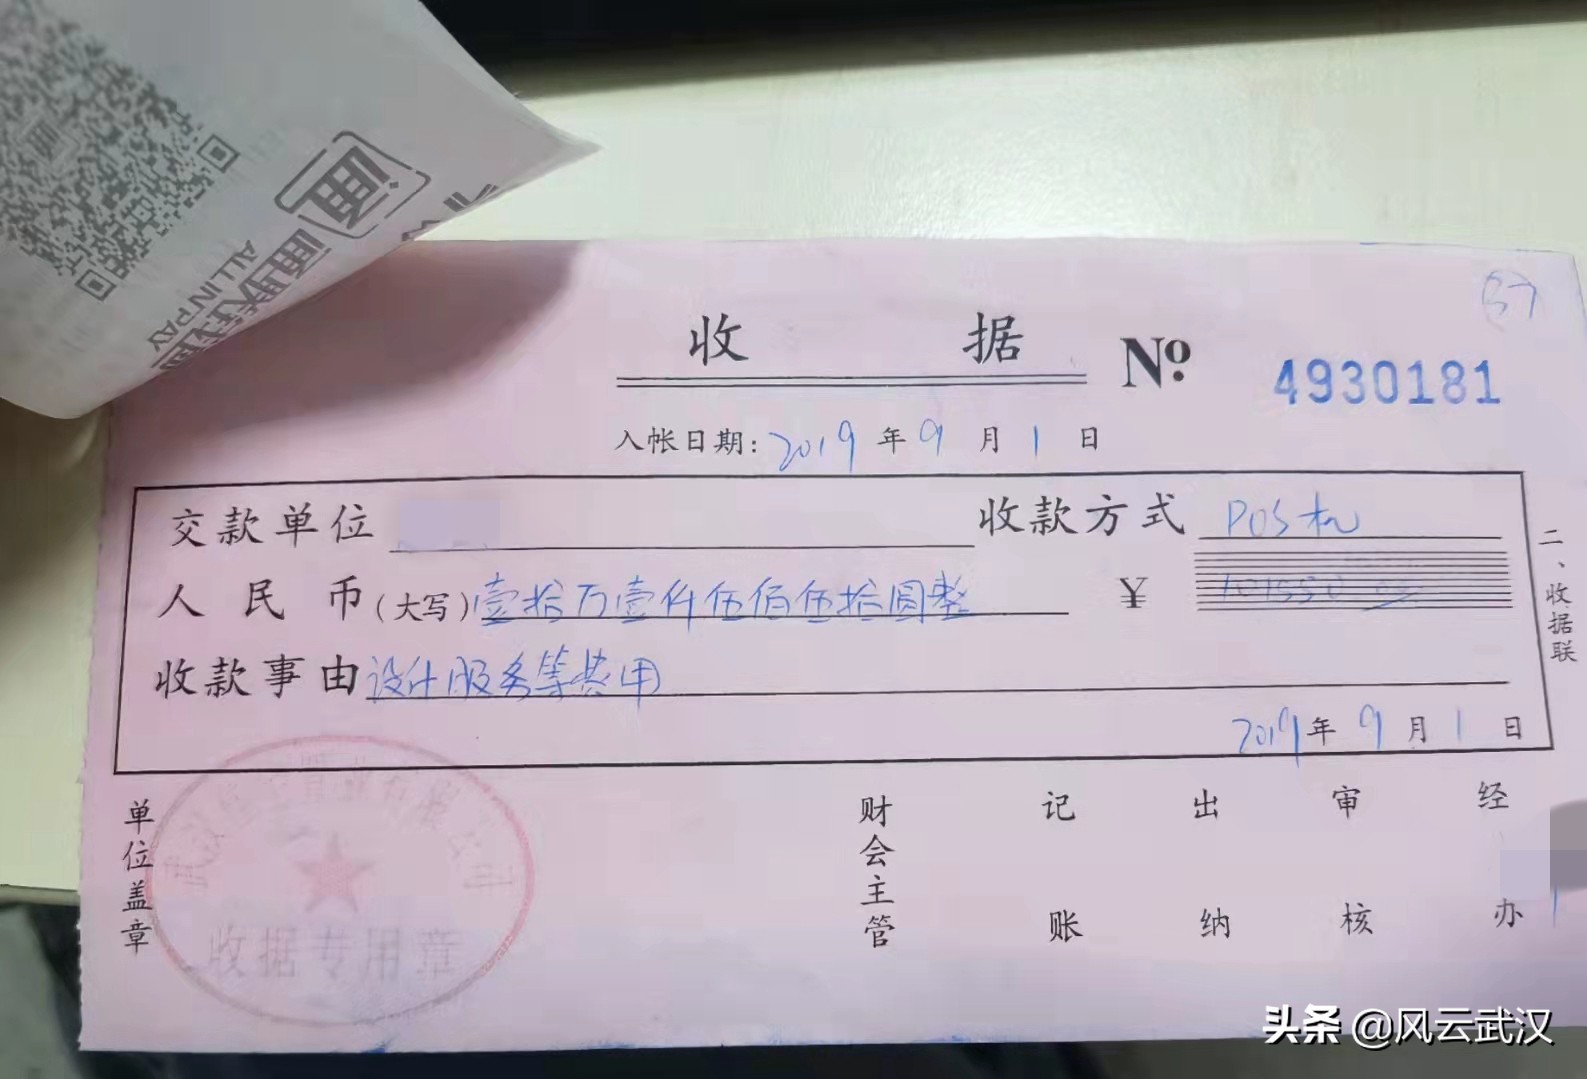 通
通联支付
ALLINPAY
57
收据 Nº 4930181
入帐日期: 2019 年 9 月 1 日
交款单位 收款方式 POS机
人民币(大写)壹拾万壹仟伍佰伍拾圆整 ¥ 101550.00
收款事由 设计服务等费用
2019年 9 月 1 日
二、收据联
单位盖章 财会主管 记账 出纳 审核 经办
置业有限公司
收据专用章
头条 @风云武汉